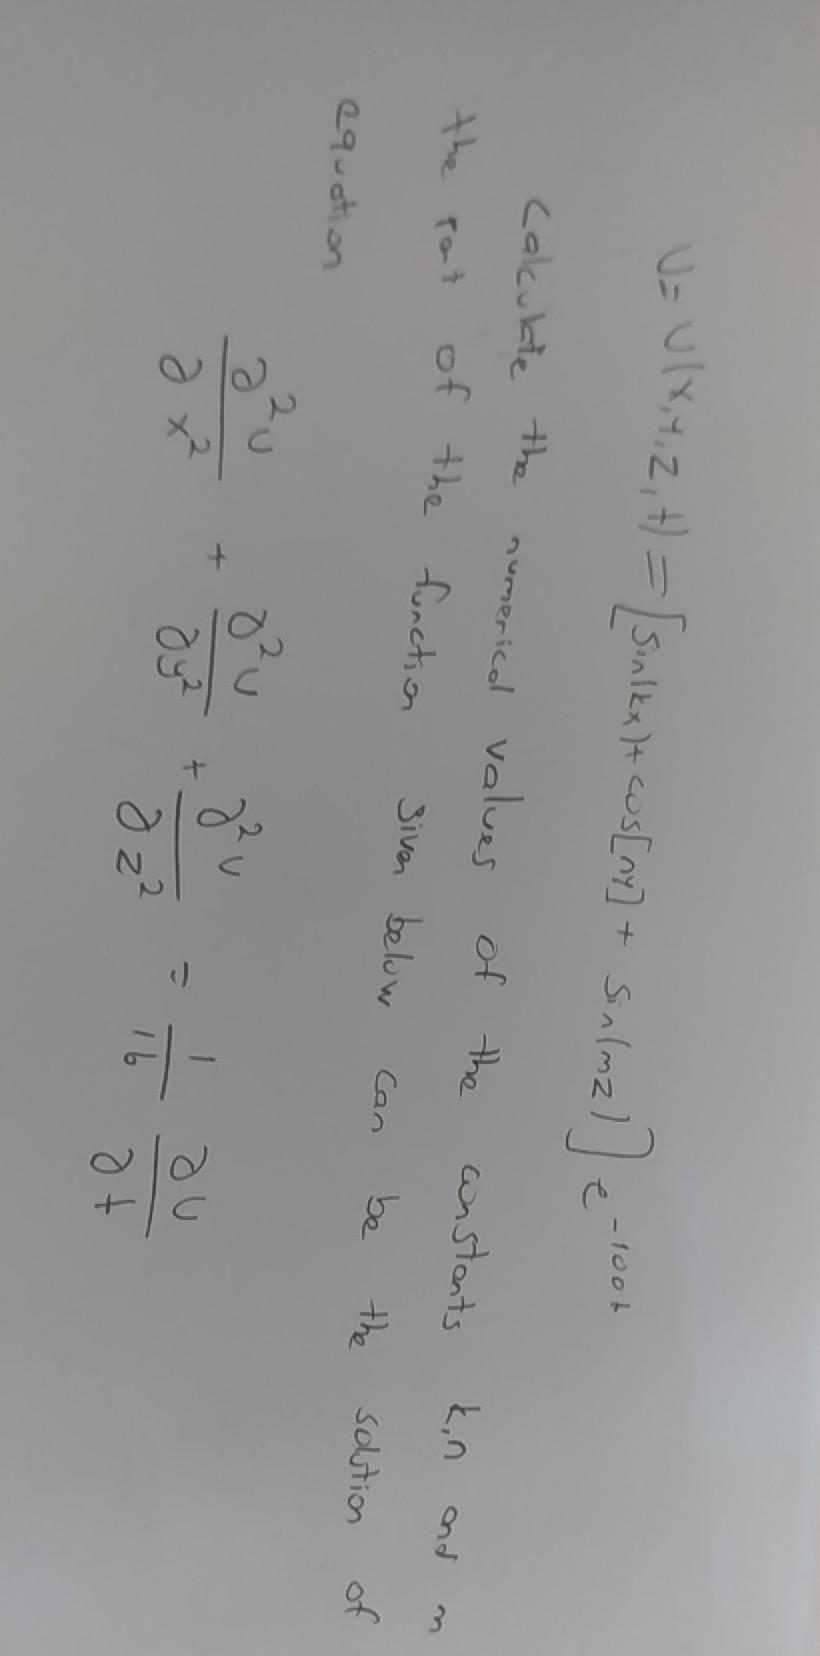 U = U(x,y,z,t) = [sin(kx)+cos[ny]+ sin(mz)] e^-100t
Calculate the numerical values of the constants k,n and m
the rat of the function given below can be the solution of
equation
∂²u/∂x² + ∂²u/∂y² + ∂²u/∂z² = 1/16 ∂u/∂t